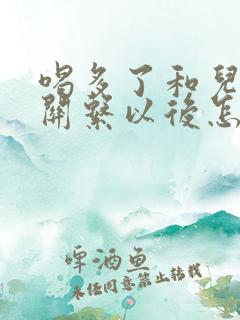 喝多了和兒
關繫以後怎
啤酒鱼
未经同意禁止转载